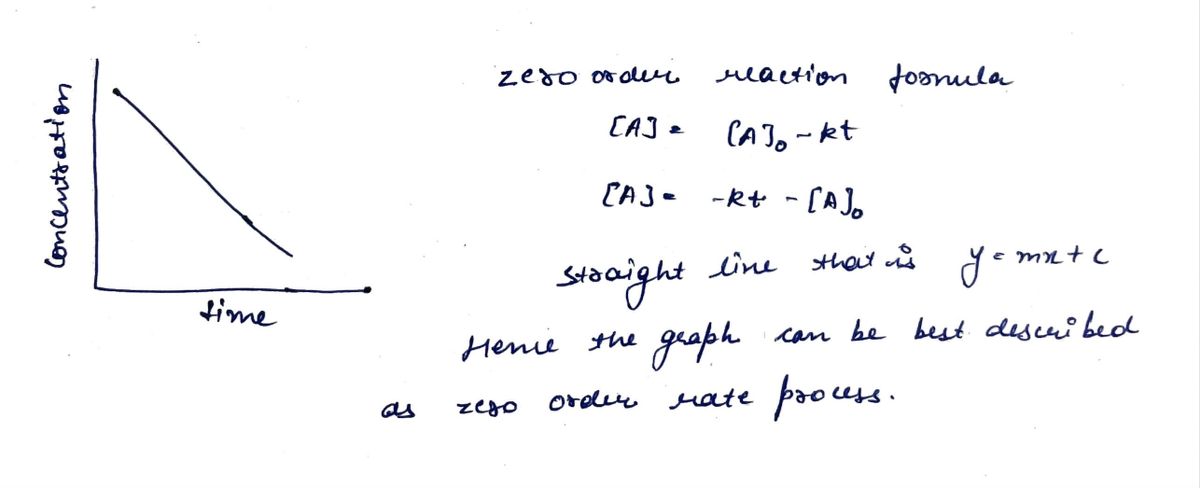 Concentration
time
zero order reaction formula
[A] = [A]₀ - kt
[A] = -kt - [A]₀
straight line that is y = mx + c
Hence the graph can be best described
as zero order rate process.